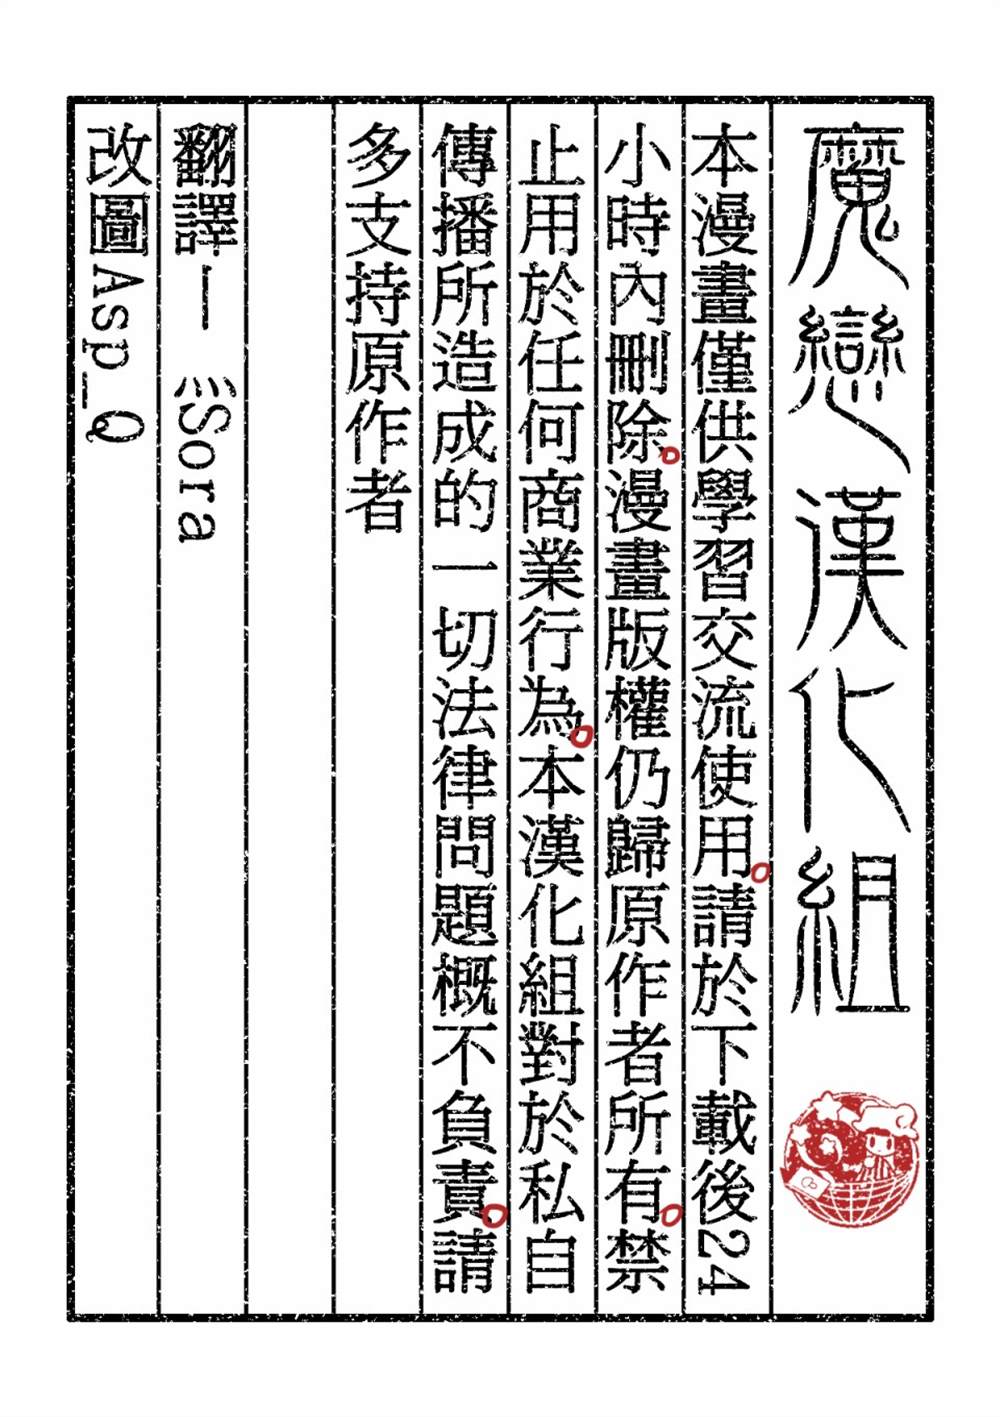 魔戀漢化組
本漫畫僅供學習交流使用。請於下載後24
小時內刪除。漫畫版權仍歸原作者所有。禁
止用於任何商業行為。本漢化組對於私自
傳播所造成的一切法律問題概不負責。請
多支持原作者
翻譯— 彡Sora
改圖Asp_Q